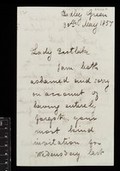 Audley Green
30th May 1857
Lady Eastlake
I am both
ashamed and sorry
on account of
having entirely
forgotten your
most kind
invitation for
Wednesday last